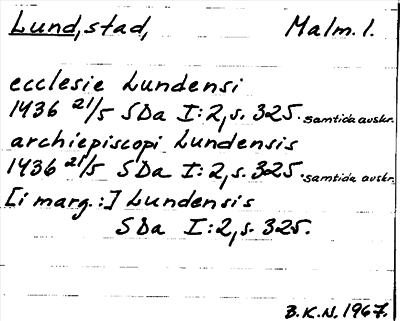 Lund, stad, Malm. l.
ecclesie Lundensi
1436 21/5 SDa I:2, s. 325. samtida avskr.
archiepiscopi Lundensis
1436 21/5 SDa I:2, s. 325. samtida avskr.
[i marg.:] Lundensis
SDa I:2, s. 325.
B.K.N. 1967.